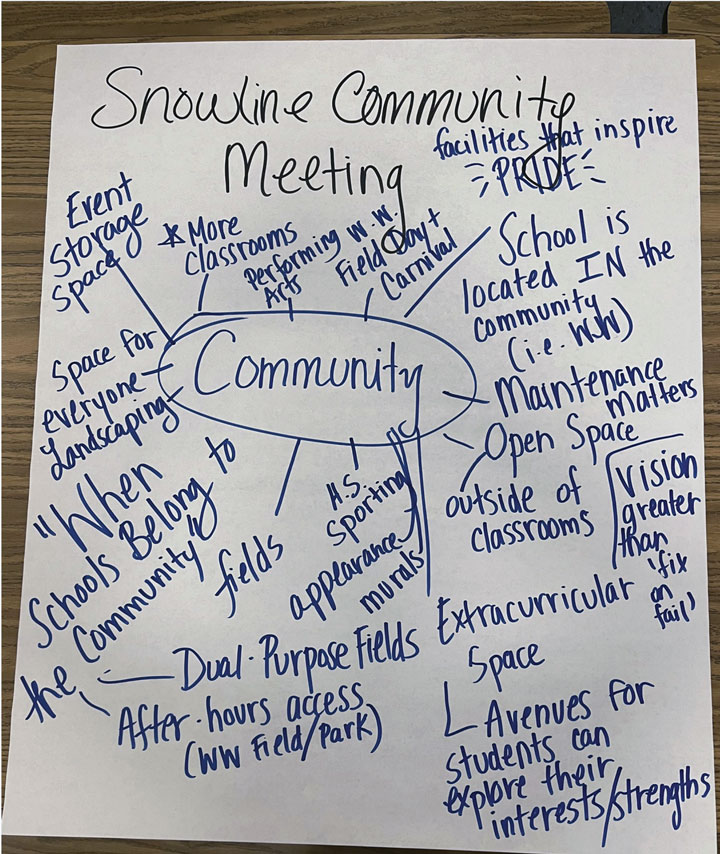 Snowline Community
Meeting
facilities that inspire
PRIDE
Event
Storage
Space
* More
Classrooms
Performing
Arts
W.W.
Field Day +
Carnival
School is
located IN the
community
(i.e. WW)
Community
Space for
everyone
Landscaping
Maintenance
matters
Open Space
outside of
classrooms
Vision
greater
than
'fix
on
fail'
"When
Schools Belong to
the Community"
fields
H.S.
Sporting
appearance
murals
Dual-Purpose Fields
After-hours access
(WW Field/Park)
Extracurricular
Space
Avenues for
students can
explore their
interests/strengths